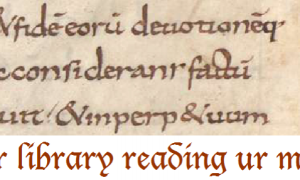 &fidē eorū deuotionēq;
considerans factū
&inperp&uum
r library reading ur m